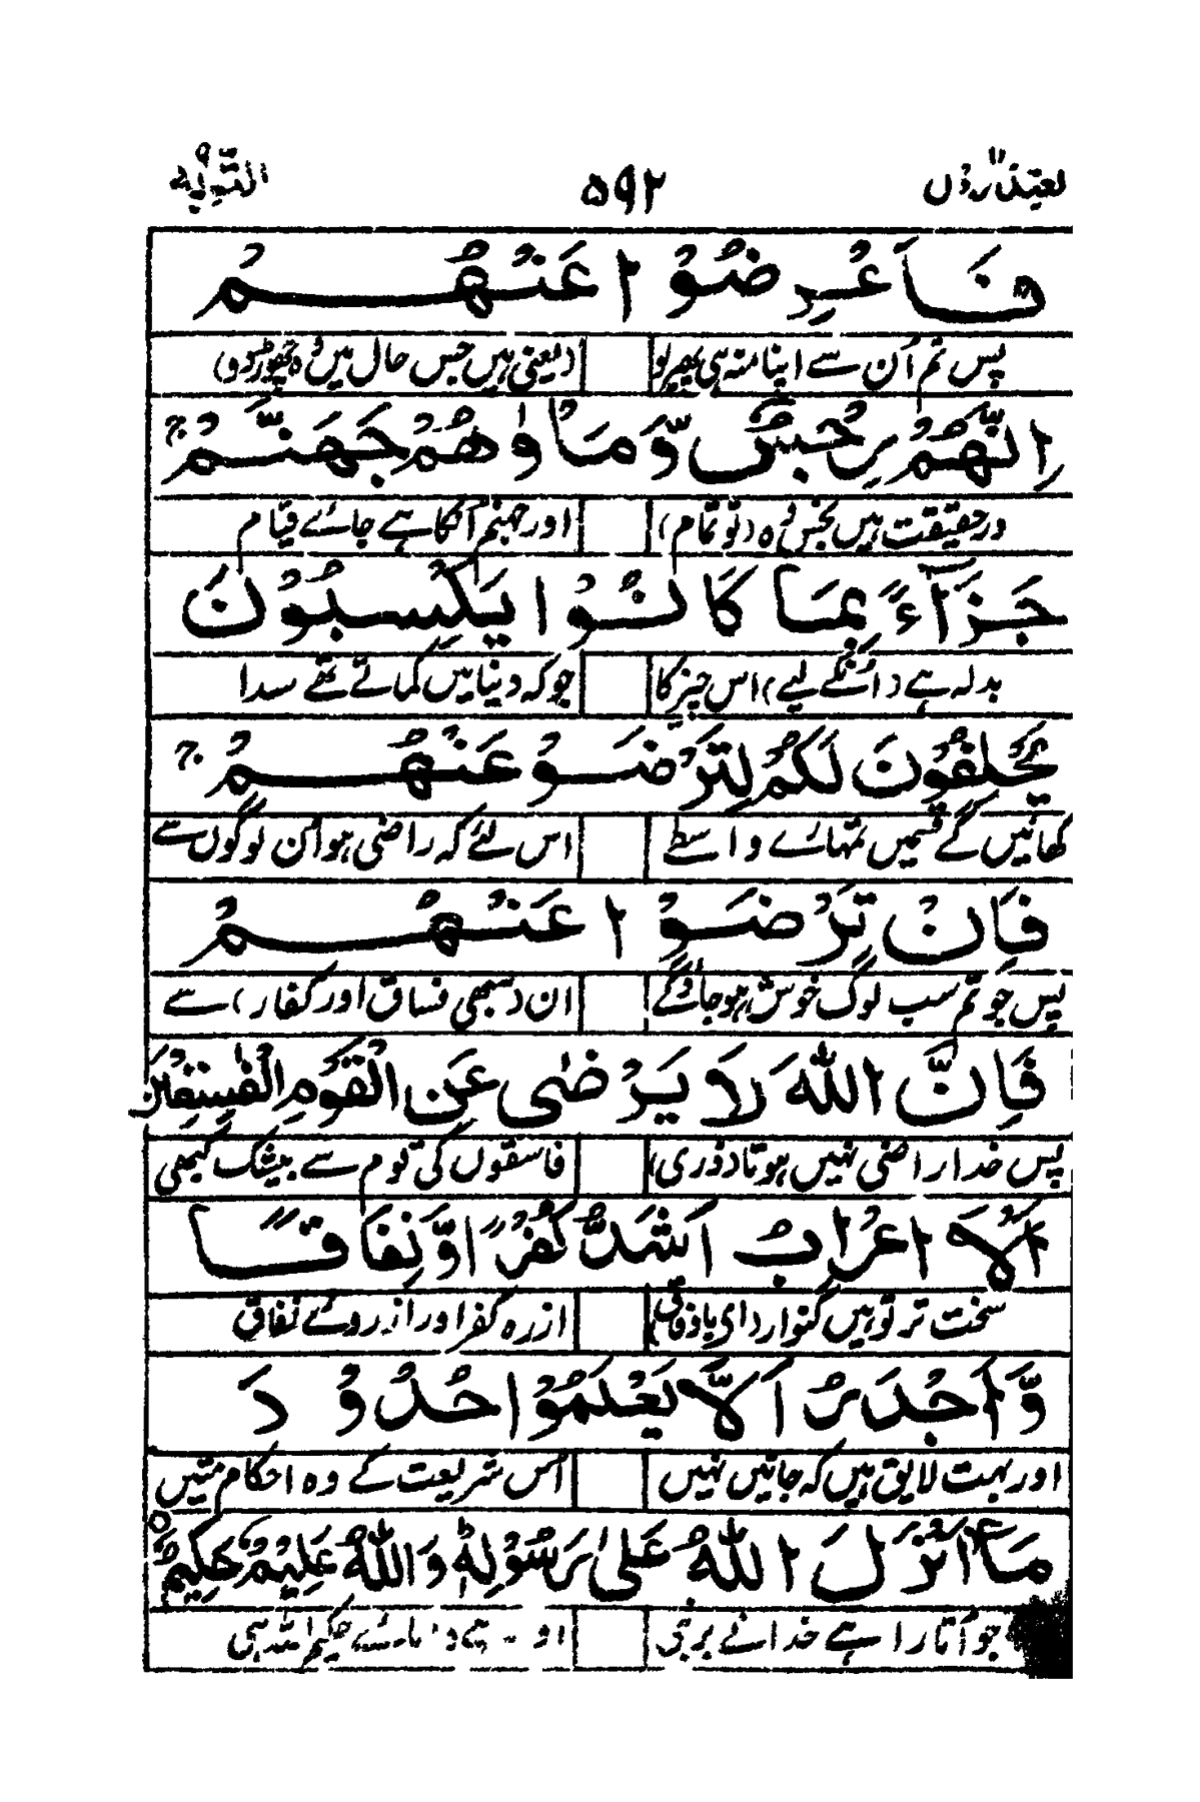 یعتذرون ۱۱ ۵۹۲ التوبة ۹
فَاَعْرِضُوْا عَنْهُمْ
پس تم اُن سے اپنا منہ ہی پھیر لو (یعنی ہیں جس حال میں وہ چھوڑ دو)
اِنَّهُمْ رِجْسٌ وَّمَاْوٰىهُمْ جَهَنَّمُ ۚ
در حقیقت ہیں نجس وہ (تو تمام) اور جہنم اُنکا ہے جائے قیام
جَزَآءًۢ بِمَا كَانُوْا يَكْسِبُوْنَ
بدلہ ہے (اُنکے لیے) اس چیز کا جو کہ دنیا میں کماتے تھے سدا
يَحْلِفُوْنَ لَكُمْ لِتَرْضَوْا عَنْهُمْ ۚ
کھائیں گے قسمیں تمہارے واسطے اس لئے کہ راضی ہو اُن لوگوں سے
فَاِنْ تَرْضَوْا عَنْهُمْ
پس جو تم سب لوگ خوش ہو جاؤ گے ان (سبھی فساق اور کفار) سے
فَاِنَّ اللّٰهَ لَا يَرْضٰى عَنِ الْقَوْمِ الْفٰسِقِيْنَ
پس خدا راضی نہیں ہوتا (ذری) فاسقوں کی قوم سے بیشک کبھی
اَلْاَعْرَابُ اَشَدُّ كُفْرًا وَّنِفَاقًا
سخت تر تو ہیں گنوار (اے باوفاق) از رہ کفر اور از روئے نفاق
وَّاَجْدَرُ اَلَّا يَعْلَمُوْا حُدُوْدَ
اور بہت لایق ہیں کہ جانیں نہیں اُس شریعت کے وہ احکام متیں
مَآ اَنْزَلَ اللّٰهُ عَلٰى رَسُوْلِهٖ ؕ وَاللّٰهُ عَلِيْمٌ حَكِيْمٌ ○
جو اُتارا ہے خدا نے بر نبی او ہے حکیم اللہ ہی